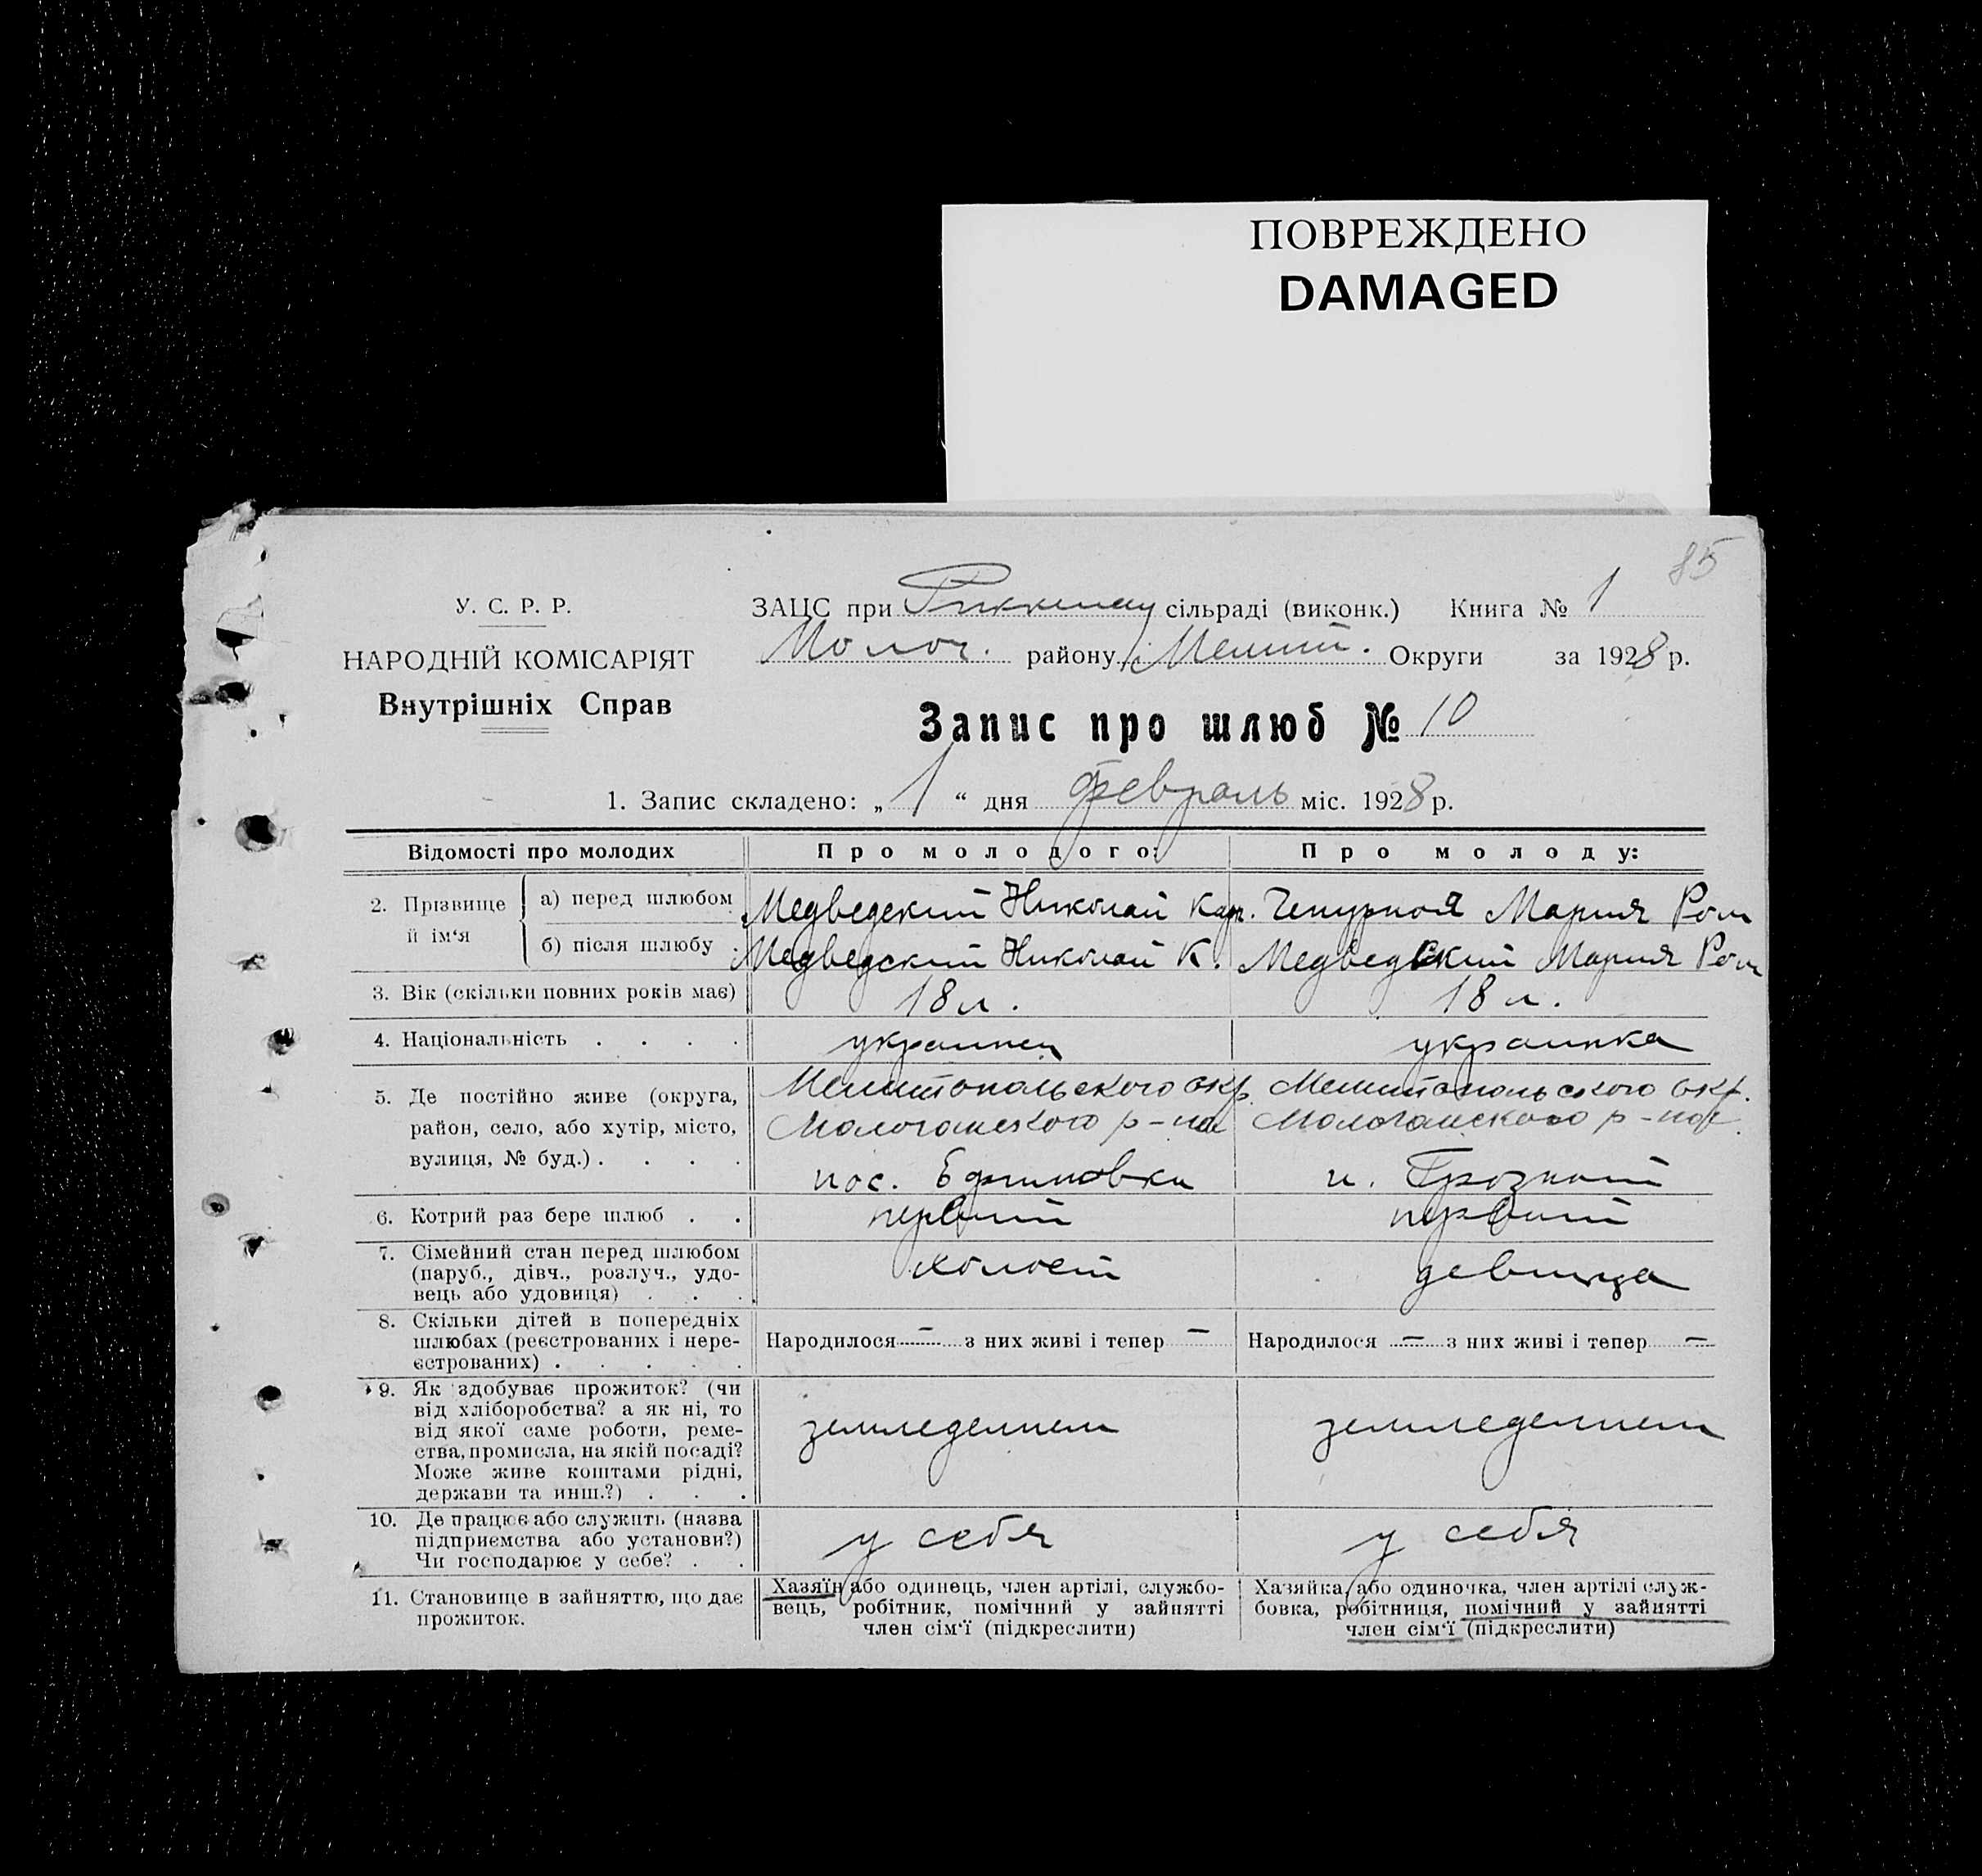 ПОВРЕЖДЕНО
DAMAGED
85
У. С. Р. Р.
НАРОДНІЙ КОМІСАРІЯТ
Внутрішніх Справ
ЗАЦС при Риккенау сільраді (виконк.) Книга № 1
Молоч. району Мелит. Округи за 1928 р.
Запис про шлюб № 10
1. Запис складено: „ 1 “ дня февраль міс. 1928 р.
Відомості про молодих Про молодого: Про молоду:
2. Прізвище й ім‘я
а) перед шлюбом Медведский Николай Кар. Чепурной Мария Ром
б) після шлюбу . Медведский Николай К. Медведский Мария Ром
3. Вік (скільки повних років має) 18 л. 18 л.
4. Національність . . . . украинец украинка
5. Де постійно живе (округа, Мелитопольского окр. Мелитопольского окр.
район, село, або хутір, місто, Молочанского р-на Молочанского р-на
вулиця, № буд.) . . . . пос. Ефимовка п. Грозный
6. Котрий раз бере шлюб . . первый первый
7. Сімейний стан перед шлюбом
(паруб., дівч., розлуч., удо-
вець або удовиця) . . . холост девица
8. Скільки дітей в попередніх
шлюбах (реєстрованих і нере-
єстрованих) . . . . . Народилося — з них живі і тепер — Народилося — з них живі і тепер —
9. Як здобуває прожиток? (чи
від хліборобства? а як ні, то
від якої саме роботи, реме-
ства, промисла, на якій посаді?
Може живе коштами рідні,
держави та инш.?) . . . земледелием земледелием
10. Де працює або служить (назва
підприємства або установи?)
Чи господарює у себе? . . у себя у себя
11. Становище в зайняттю, що дає
прожиток.
Хазяїн або одинець, член артілі, службо-
вець, робітник, помічний у зайнятті
член сім‘ї (підкреслити)
Хазяйка, або одиночка, член артілі служ-
бовка, робітниця, помічний у зайнятті
член сім‘ї (підкреслити)